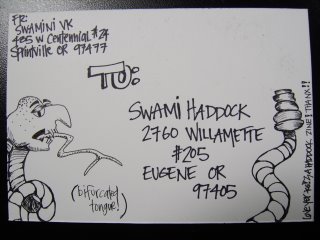 FR:
SWAMINI VK
485 W CENTENNIAL #24
SPRINVILLE OR 97477
TO:
SWAMI HADDOCK
2760 WILLAMETTE
#205
EUGENE OR
97405
(bifurcated
tongue!)
HADDOCK ZINE! THANX!!